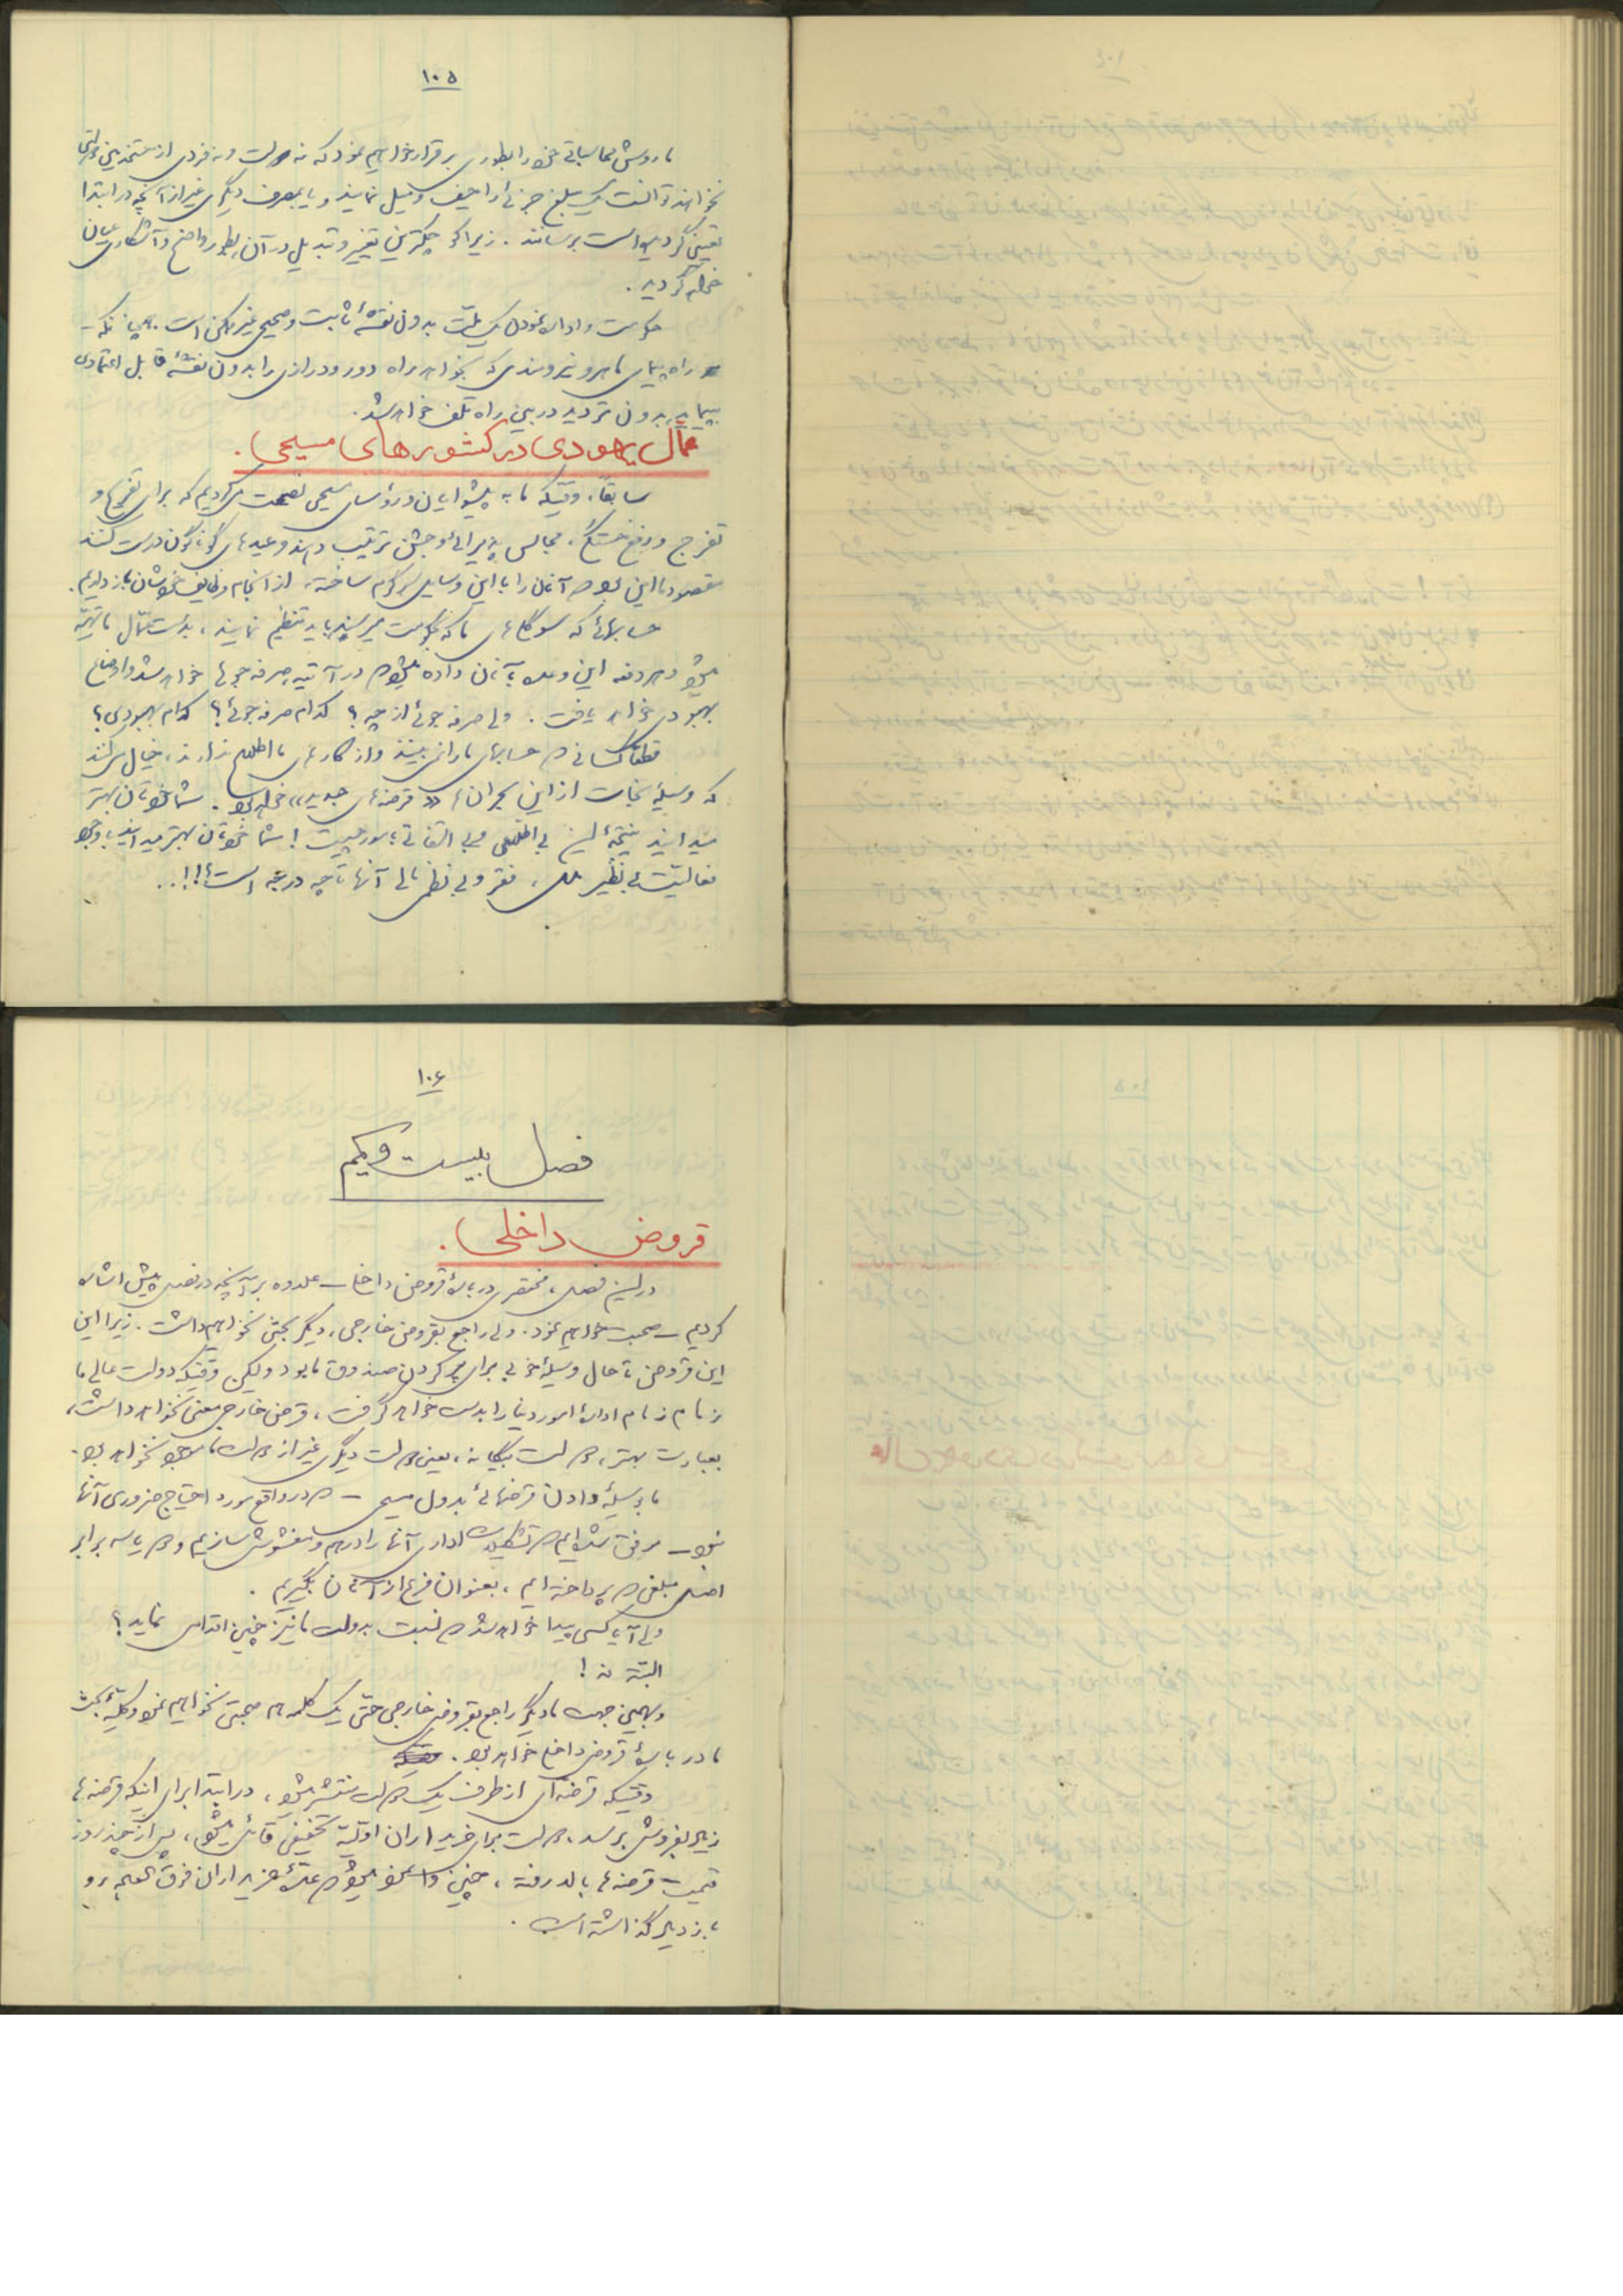 ۱۰۵
ما روش محاسباتی خود را بطوری برقرار خواهیم نمود که نه دولت و نه فردی از مستخدمین دولتی
نخواهند توانست یک مبلغ جزئی را حیف و میل نمایند و یا بمصرف دیگری غیر از آنچه در ابتدا
تعیین گردیده است برسانند. زیرا کوچکترین تغییر و تبدیل در آن بطور واضح و آشکار عیان
خواهد گردید.
حکومت و اداره نمودن یک ملت بدون نقشهٔ ثابت و صحیح غیر ممکن است. همچنانکه
راه پیمای ماهر و نیرومندی که بخواهد راه دور و درازی را بدون نقشهٔ قابل اعتمادی
بپیماید بدون تردید در بین راه تلف خواهد شد.
عمال یهودی در کشورهای مسیحی.
سابقاً، وقتیکه ما به پیشوایان و رؤسای مسیحی نصیحت میکردیم که برای تفریح و
تفرج و رفع خستگی، مجالس پذیرائی و جشن ترتیب دهند و عیدهای گوناگون درست کنند
مقصود ما این بود که آنان را با این وسایل سرگرم ساخته، از انجام وظایف خودشان باز داریم.
حسابهائی که سوگلی‌های ما که بحکومت میرسیدند باید تنظیم نمایند، بدست عمّال ما تهیّه
میشود و هر دفعه این وعده بآنان داده میشود که در آتیه صرفه‌جوئیها خواهد شد و اوضاع
بهبودی خواهد یافت. ولی صرفه جوئی از چه؟ کدام صرفه جوئی؟ کدام بهبودی؟
قطعاً کسانی که حسابهای ما را می‌بینند و از کارهای ما اطلاع ندارند، خیال میکنند
که وسیلهٔ نجات از این بحرانها «قرضه‌های جدید» خواهد بود. شما خودتان بهتر
میدانید نتیجهٔ این بی‌اطلاعی و بی‌التفاتی بامور چیست! شما خودتان بهتر میدانید با وجود
فعالیّت بی‌نظیر ملل، فقر و بی‌نظمی مالی آنها تا چه درجه است!!!..
۱۰۶
فصل بیست و یکم
قروض داخلی.
در این فصل، مختصری دربارهٔ قروض داخلی – علاوه بر آنچه در فصل پیش اشاره
کردیم – صحبت خواهیم نمود. ولی راجع بقروض خارجی، دیگر بحثی نخواهیم داشت. زیرا این
این قروض تا حال وسیلهٔ خوبی برای پر کردن صندوق ما بود ولیکن وقتیکه دولت عالی ما
زمام زمام ادارهٔ امور دنیا را بدست خواهد گرفت، قرض خارجی معنی نخواهد داشت،
بعبارت بهتر، دولت بیگانه، یعنی دولت دیگری غیر از دولت ما موجود نخواهد بود.
ما بوسیلهٔ دادن قرضهائی بدول مسیحی – که در واقع مورد احتیاج ضروری آنها
نبود – موفق شده‌ایم که تشکیلات اداری آنها را درهم و مغشوش سازیم و دو یا سه برابر
اصل مبلغی که پرداخته‌ایم، بعنوان فرع از آنان بگیریم.
ولی آیا کسی پیدا خواهد شد که نسبت بدولت ما نیز چنین اقدامی نماید؟
البتّه نه!
و بهمین جهت ما دیگر راجع بقروض خارجی حتّی یک کلمه هم صحبتی نخواهیم نمود و کلیّهٔ بحث
ما دربارهٔ قروض داخلی خواهد بود.
وقتیکه قرضه‌ای از طرف یک دولت منتشر میشود، در ابتدا برای اینکه قرضه‌ها
زیاد بفروش برسد، دولت برای خریداران اولیّه تخفیفی قائل میشود، پس از چند روز
قیمت قرضه‌ها بالا رفته، چنین وانمود میشود که عدّهٔ خریداران فوق‌العاده رو
بازدیاد گذاشته است.